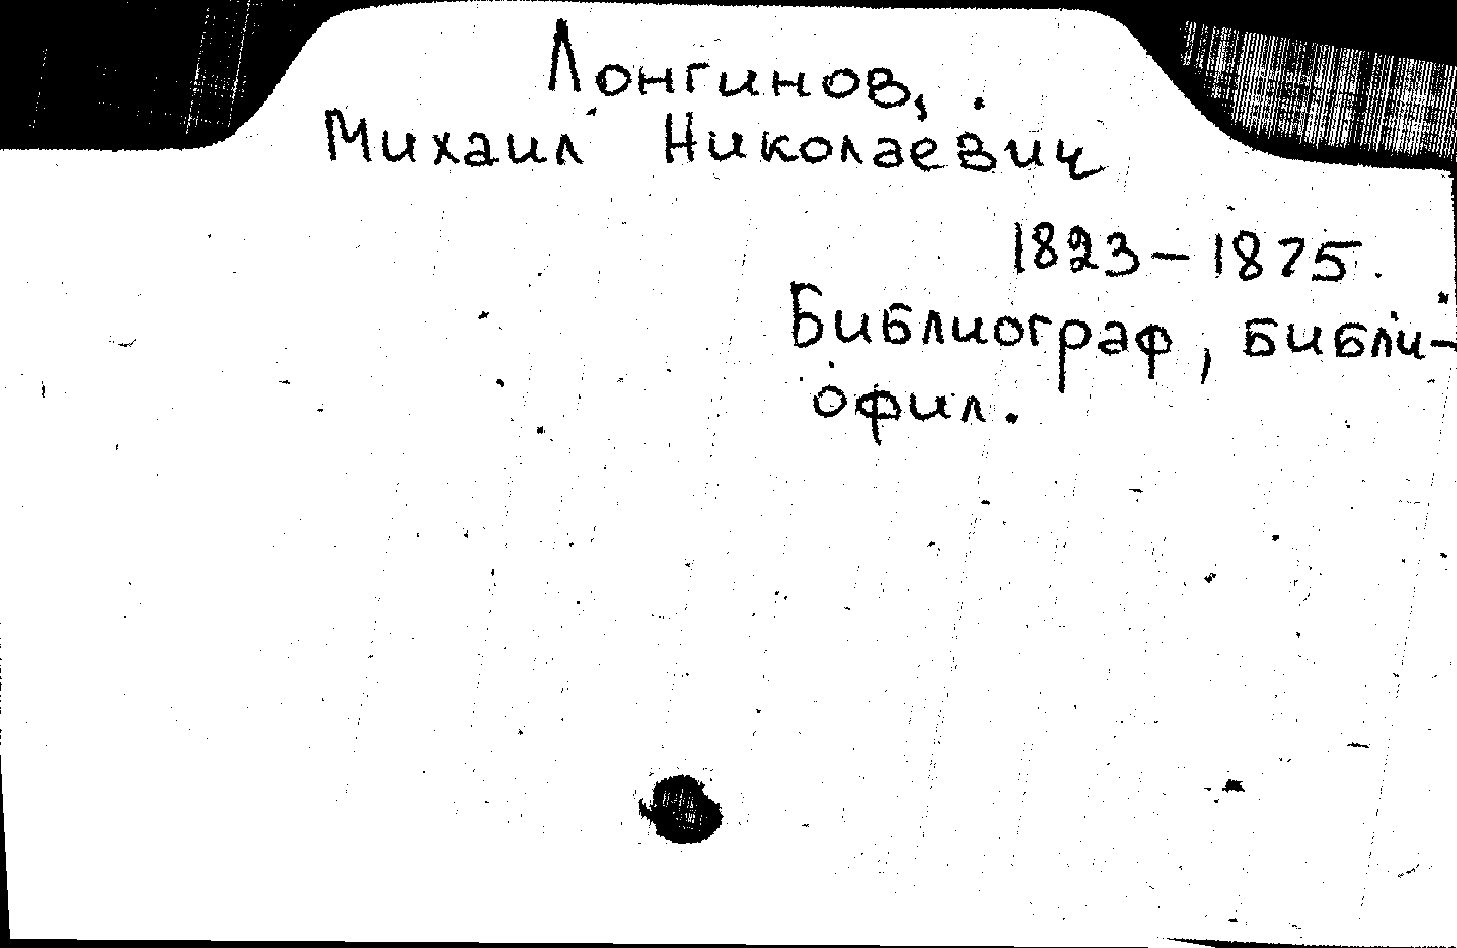 Лонгинов,
Михаил Николаевич
1823–1875.
Библиограф, библи-
офил.